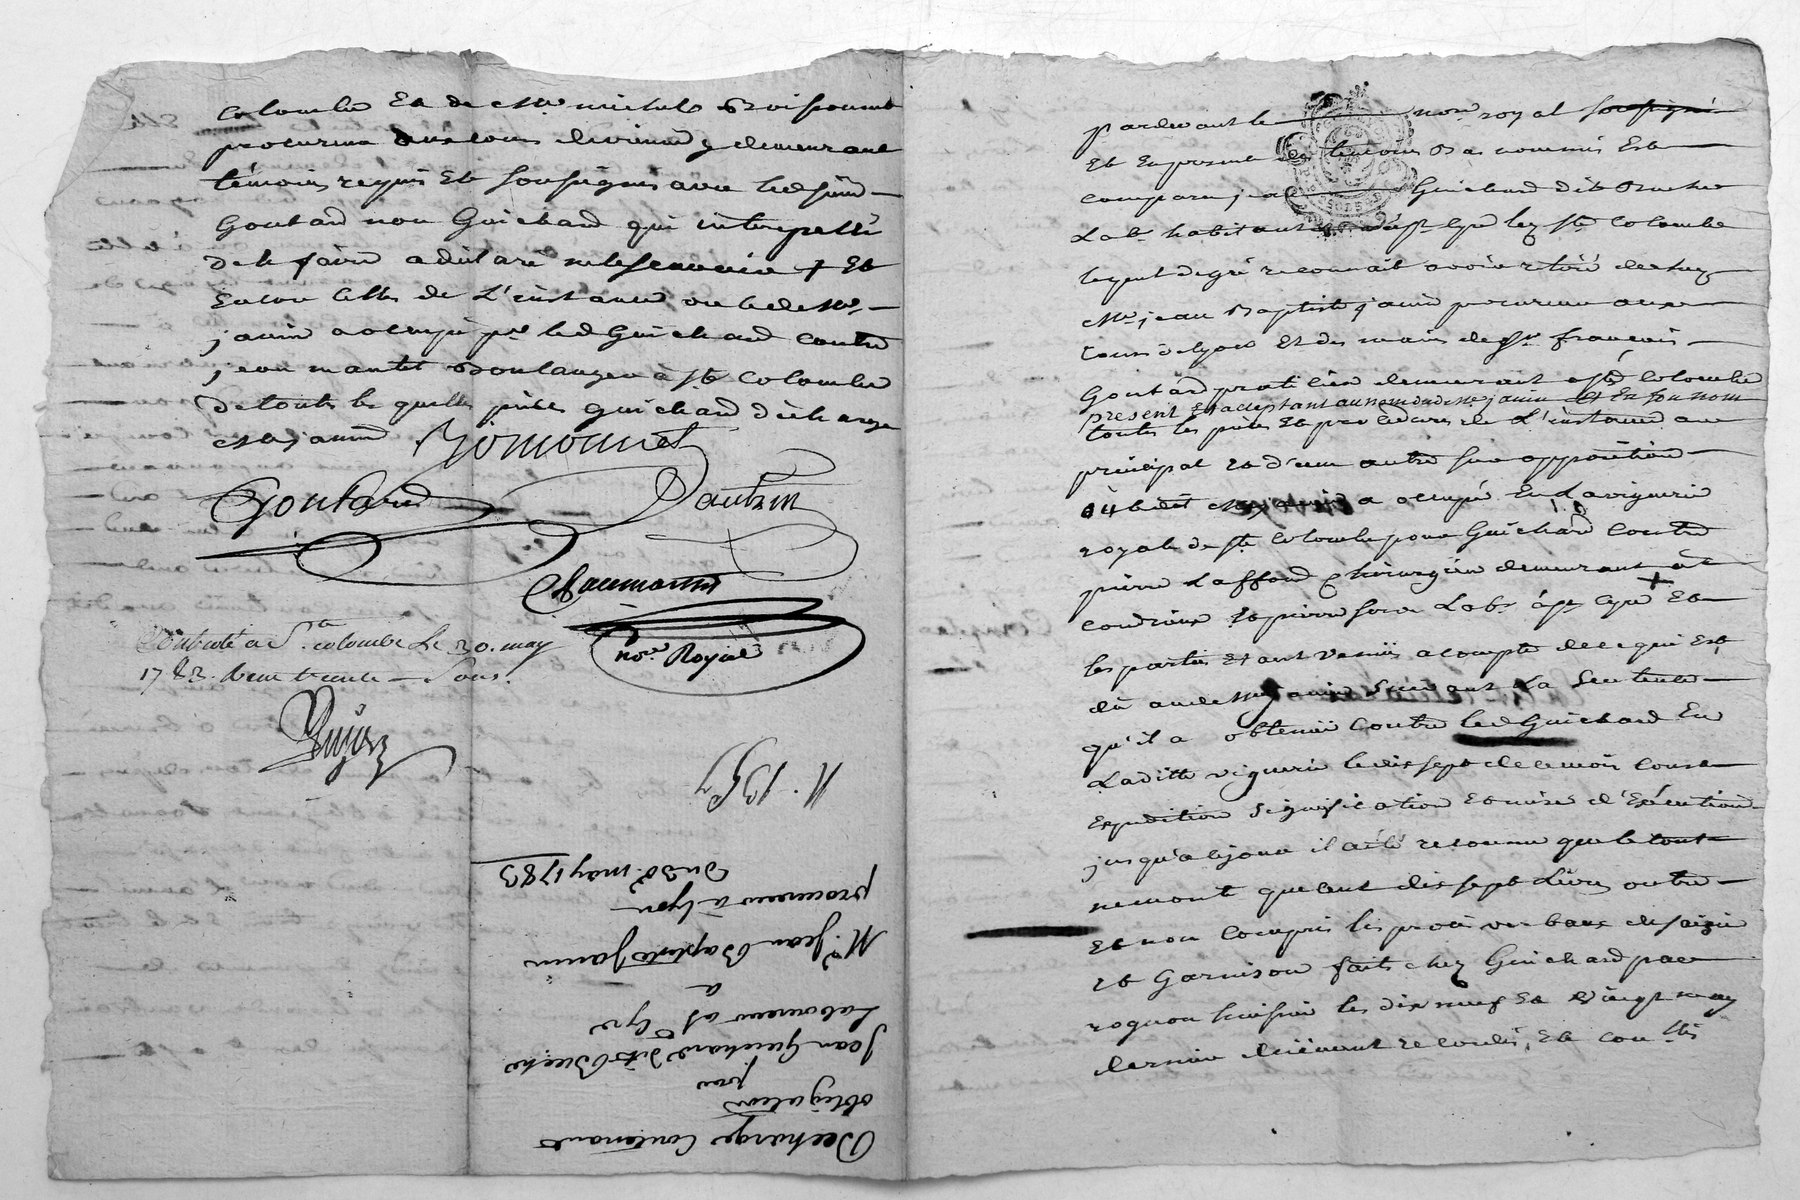 colombe Et de Me michel
procureur aux cours de vienne y demeurant
témoins requis Et soussignés avec led sieur
Goutard non Guichard qui interpellé
de le faire a déclaré ne le scavoir + Et
Encore celles de L'instance ou ledt Me
janin a occupé pr led Guichard contre
jean mantel Boulanger à ste Colombe
de toutes les quelles pieces Guichard décharge
Me janin
Goutard
Dauban
nore Royal
Controlé a Ste colombe Le 30. may
1783. Reçu trente Sous.
Guyon
N. 1357
Decharge Contenant
obligation
pour
Jean Guichard dit Buche
Laboureur a St Cyr
a
Me Jean Baptiste Janin
procureur à Lyon
du 30e. may 1783
pardevant le nore royal soussigné
Et En presence des temoins Bas nommés Est
comparu jean Guichard dit Buche
Labr habitant de la psse de st Cyr lez ste Colombe
lequel de gré reconnait avoir retiré de
Me jean Baptiste janin procureur aux
Cours de lyon Et des mains de sr françois
Goutard praticien demeurant a ste Colombe
present Et acceptant au nom dud Me janin Et En son nom
toutes les pieces Et procedures de L'instance au
principal Et d'une autre sur opposition
où ledit Me janin a occupé En La viguerie
royale de ste Colombe pour Guichard Contre
pierre Laffond chirurgien demeurant à
condrieux Et pierre Labr à st Cyr Et
les parties Etant venues a compte de ce qui Est
dû aud Me janin Suivant La Sentence
qu'il a obtenüe Contre led Guichard En
Ladite viguerie le dix sept de ce mois
Expedition Signification Et mise d'Exécution
jusqu'a ce jour il a été reconnu que le tout
ne monte que cent dix sept Livres outre
Et non Compris les procès verbaux de saizie
Et Garnison faits chez Guichard par
rognon huissier les dix neuf Et vingt may